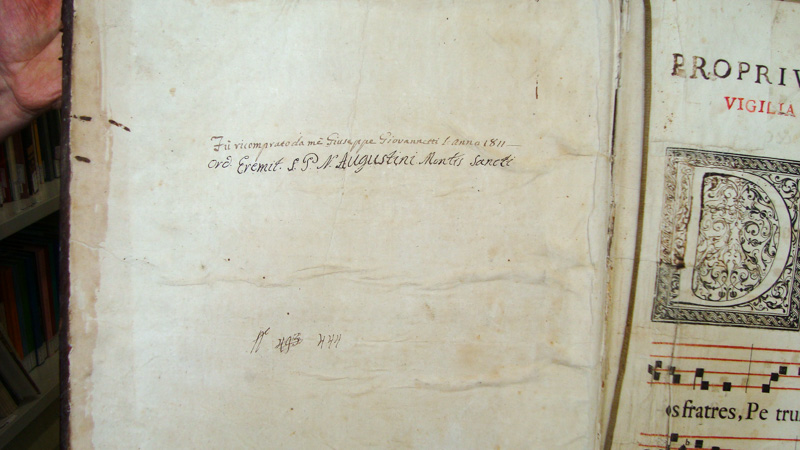 Fù ricomprato da mè Giuseppe Giovanetti l'anno 1811
Ord. Eremit. S. P. N. Augustini Montis Sancti
493 444
PROPRIV
VIGILIA
D
os fratres, Pe tru